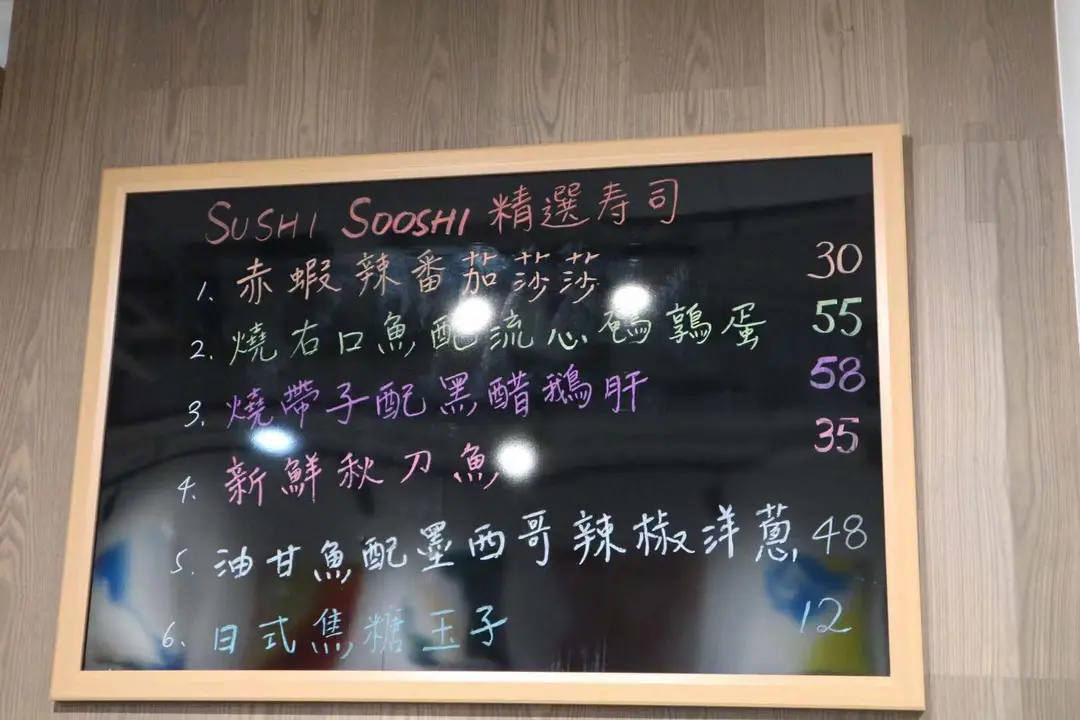 SUSHI SOOSHI 精選寿司
1. 赤蝦辣番茄莎莎 30
2. 燒右口魚配流心鵪鶉蛋 55
3. 燒帶子配黑醋鵝肝 58
4. 新鮮秋刀魚 35
5. 油甘魚配墨西哥辣椒洋蔥 48
6. 日式焦糖玉子 12